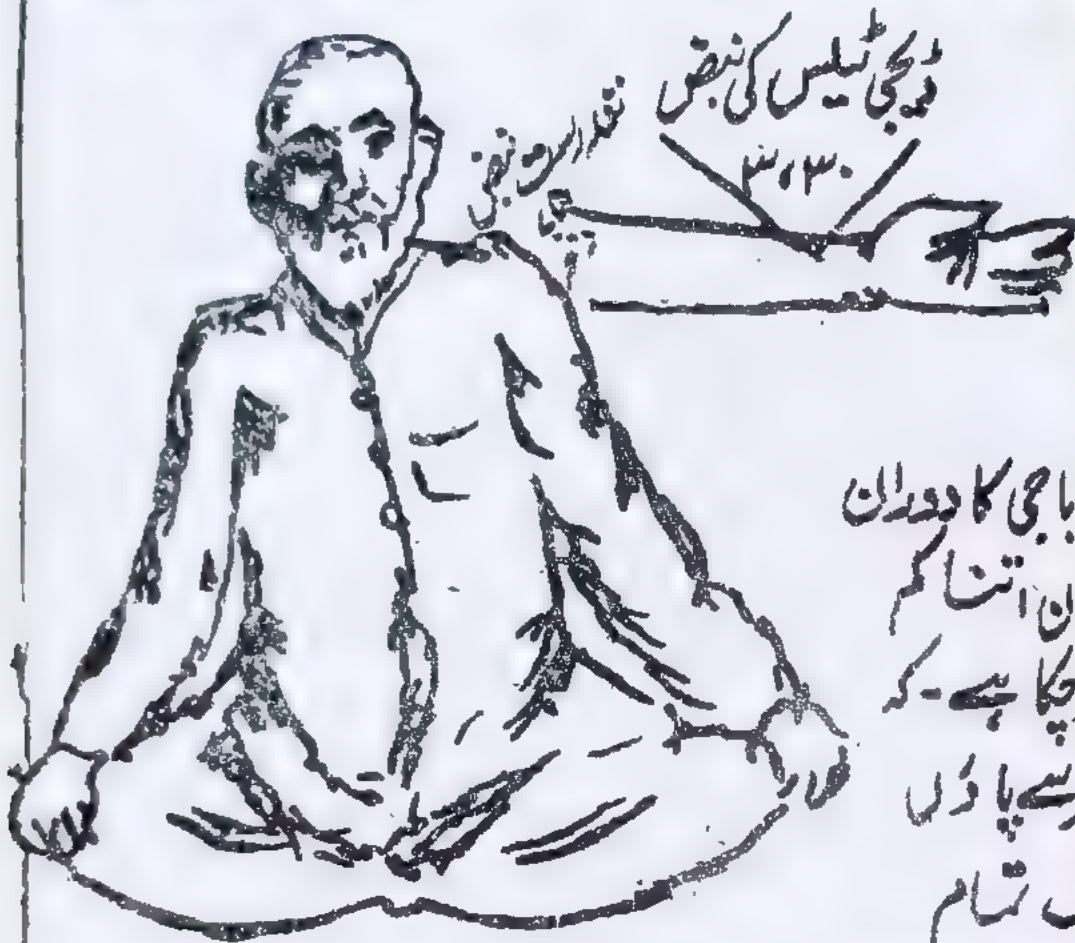 ڈیجی ٹیلس کی نبض
۳،۳۰
تندرست نبض
باجی کا دوران
ان اتنا کم
چکا ہے - کہ
سے پاؤں
تمام